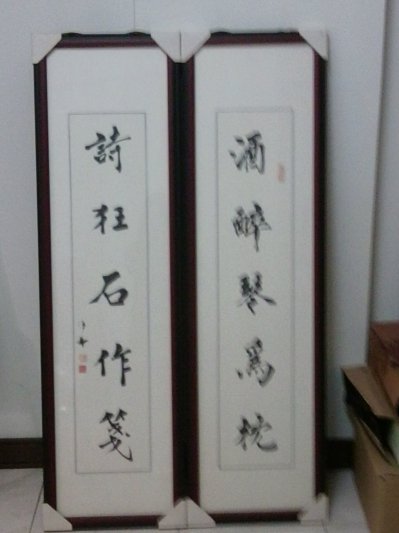 酒醉琴為枕
詩狂石作箋